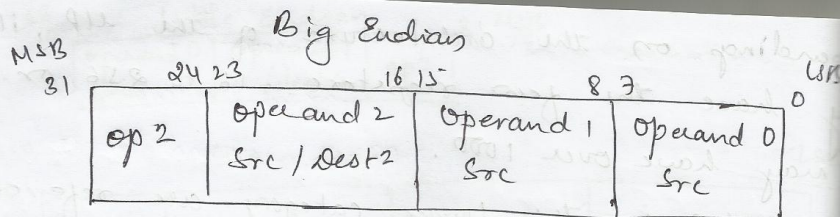 Big Endian
MSB
31 24 23 16 15 8 7 0
LSB
op 2
operand 2
Src / Dest2
operand 1
Src
operand 0
Src